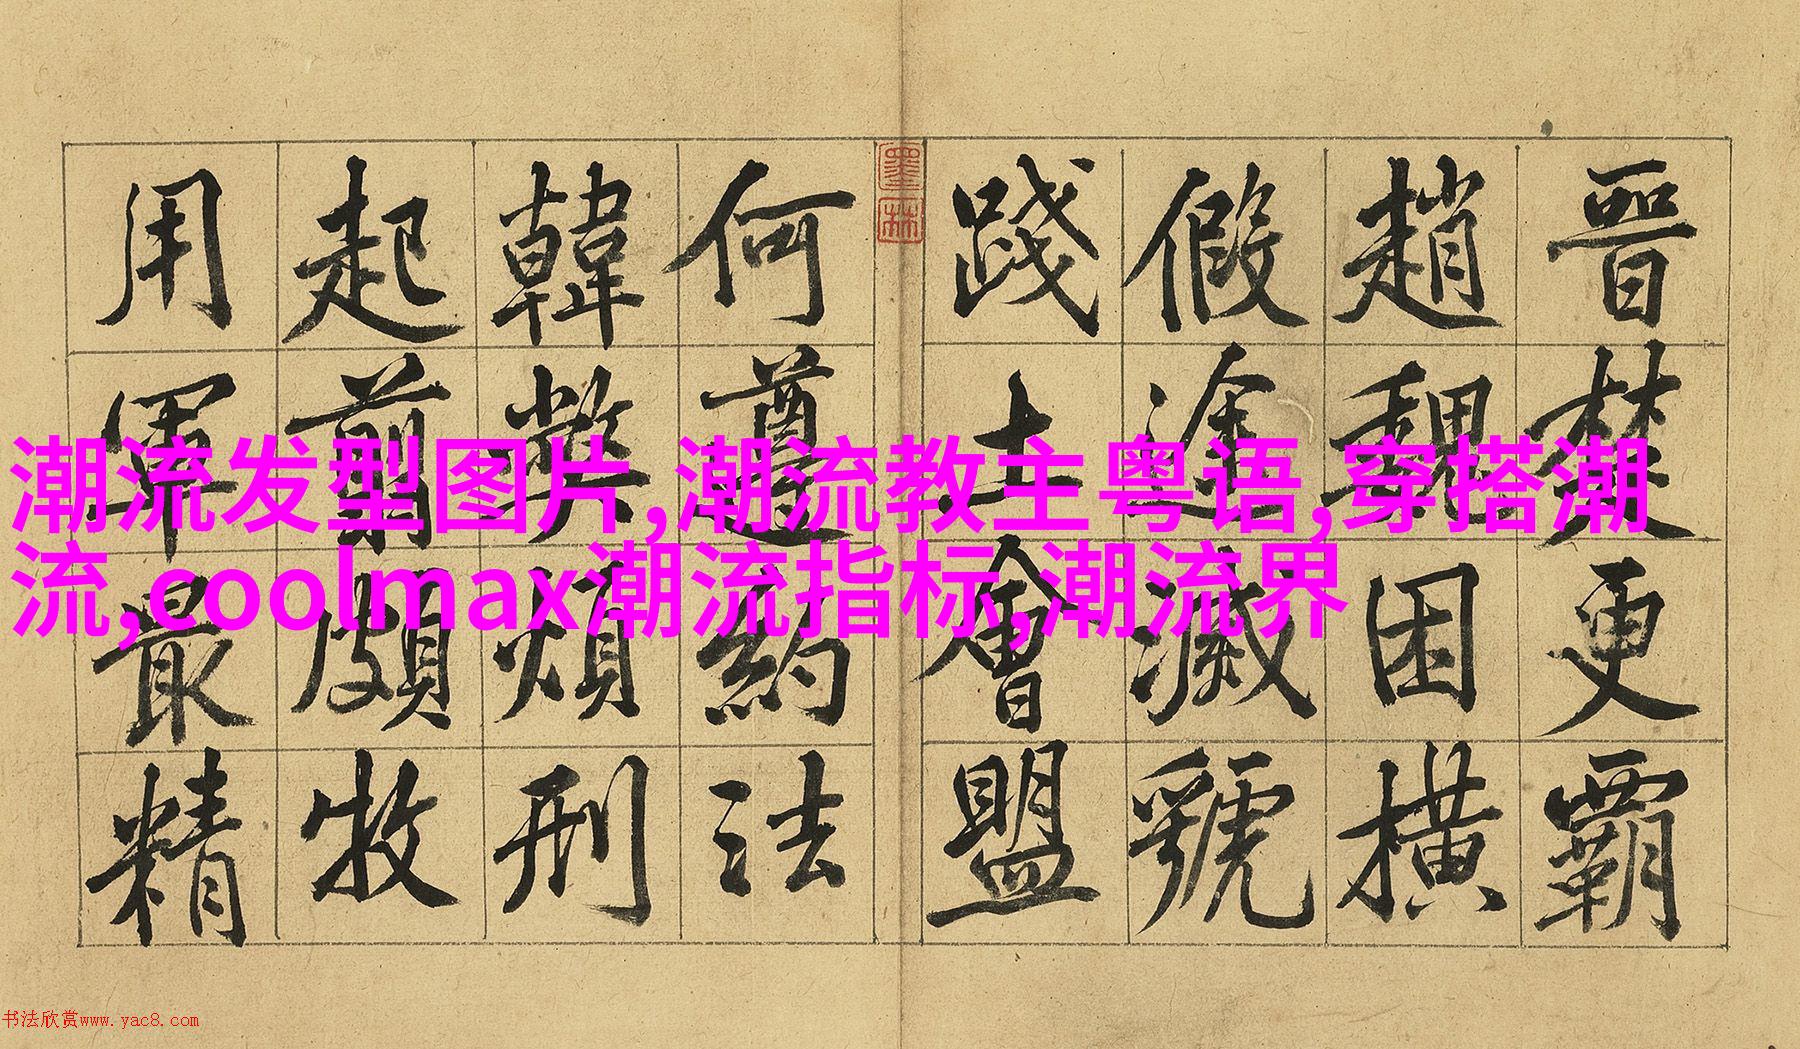 晉楚更霸
趙魏困橫
假途滅虢
踐土會盟
墨林
何遵約法
韓弊煩刑
起翦頗牧
用軍最精
潮流发型图片,潮流教主粤语,穿搭潮
流,coolmax潮流指标,潮流界
书法欣赏www.yac8.com